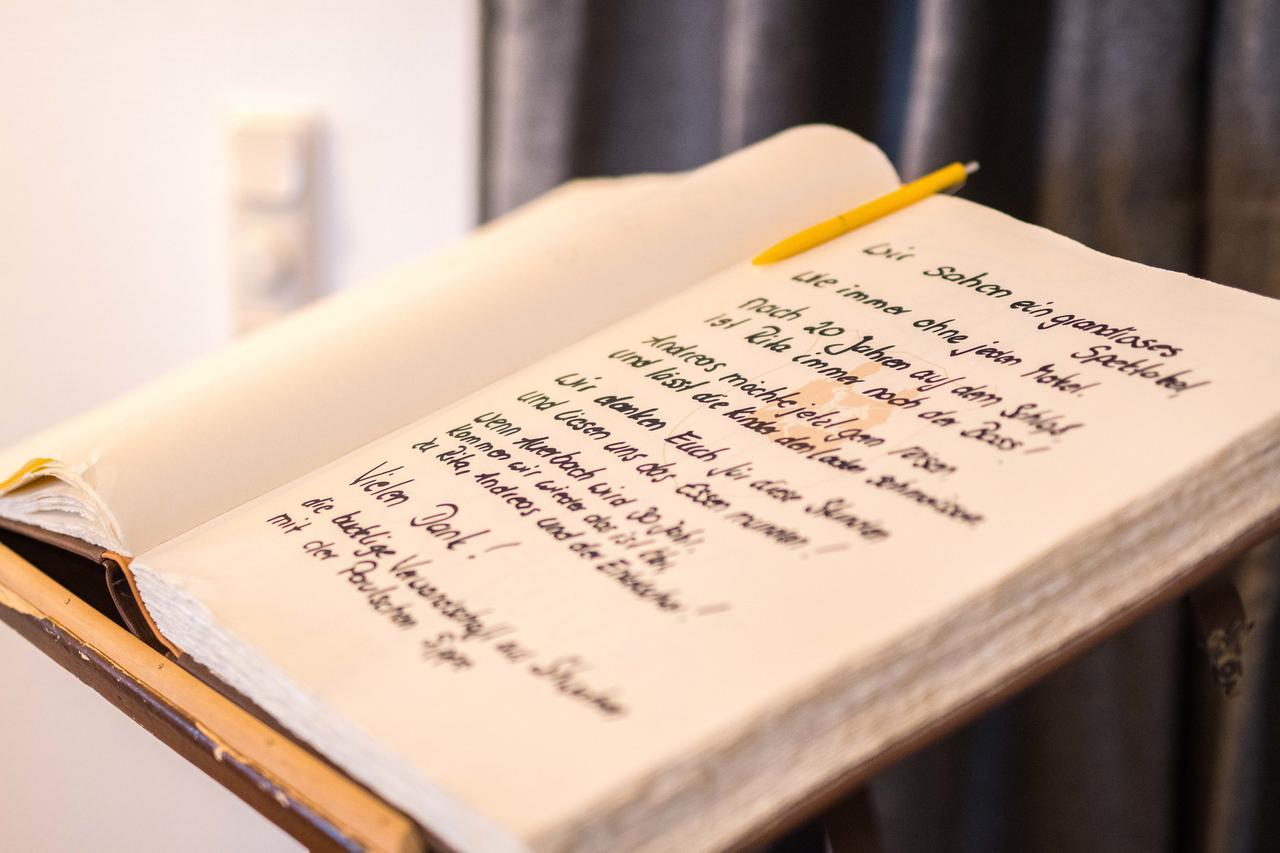 Wir sahen ein grandioses
Spektakel,
Wie immer ohne jeden Makel.
Nach 20 Jahren auf dem Schloß,
ist Rita immer noch der Boss!
Andreas möchte jetzt gern reisen
und lässt die Kinder den laden schmeissen
Wir danken Euch für diese Stunden
und liesen uns das Essen munden!
Wenn Auerbach wird 30 Jahr,
kommen wir wieder das ist klar
zu Rita, Andreas und der
Vielen Dank!
die bucklige Verwandschaft aus
mit der Paulschen Sippe